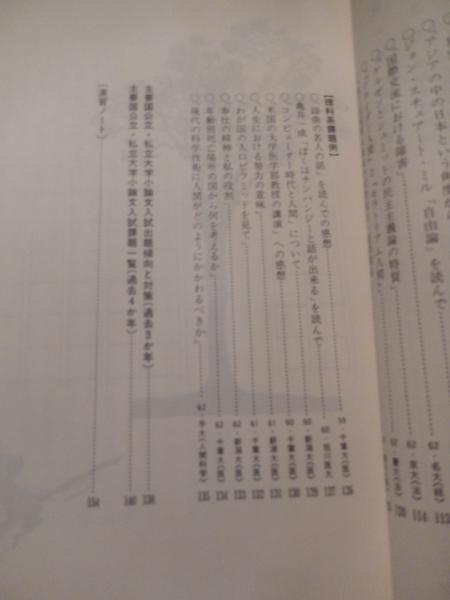 アジアの中の日本という
ジョン・スチュアート・ミル『自由論』を読んで
国際交流における障害
の民主主義論の特質
62・名大(経)
113
62・京大(法)
114
120
【理科系課題例】
「論衡の名人の話」を読んでの感想
59・千葉大(医)
126
亀井一成「ぼくはチンパンジーと話が出来る」を読んで
60・旭川医大
127
「コンピューター時代と人間」について
60・新潟大(医)
129
「米国の大学医学部教授の講演」への感想
60・千葉大(医)
130
「人生における努力の意味」
61・新潟大(医)
131
「わが国の人口ピラミッドを見て」
61・千葉大(医)
132
「奉仕の精神と私の役割」
62・新潟大(医)
133
62・千葉大(医)
134
「現代の科学技術に人間がどのようにかかわるべきか」
62・早大(人間科学)
135
主要国公立・私立大学小論文入試出題傾向と対策(過去3か年)
138
主要国公立・私立大学小論文入試課題一覧(過去4か年)
140
〔演習ノート〕
154